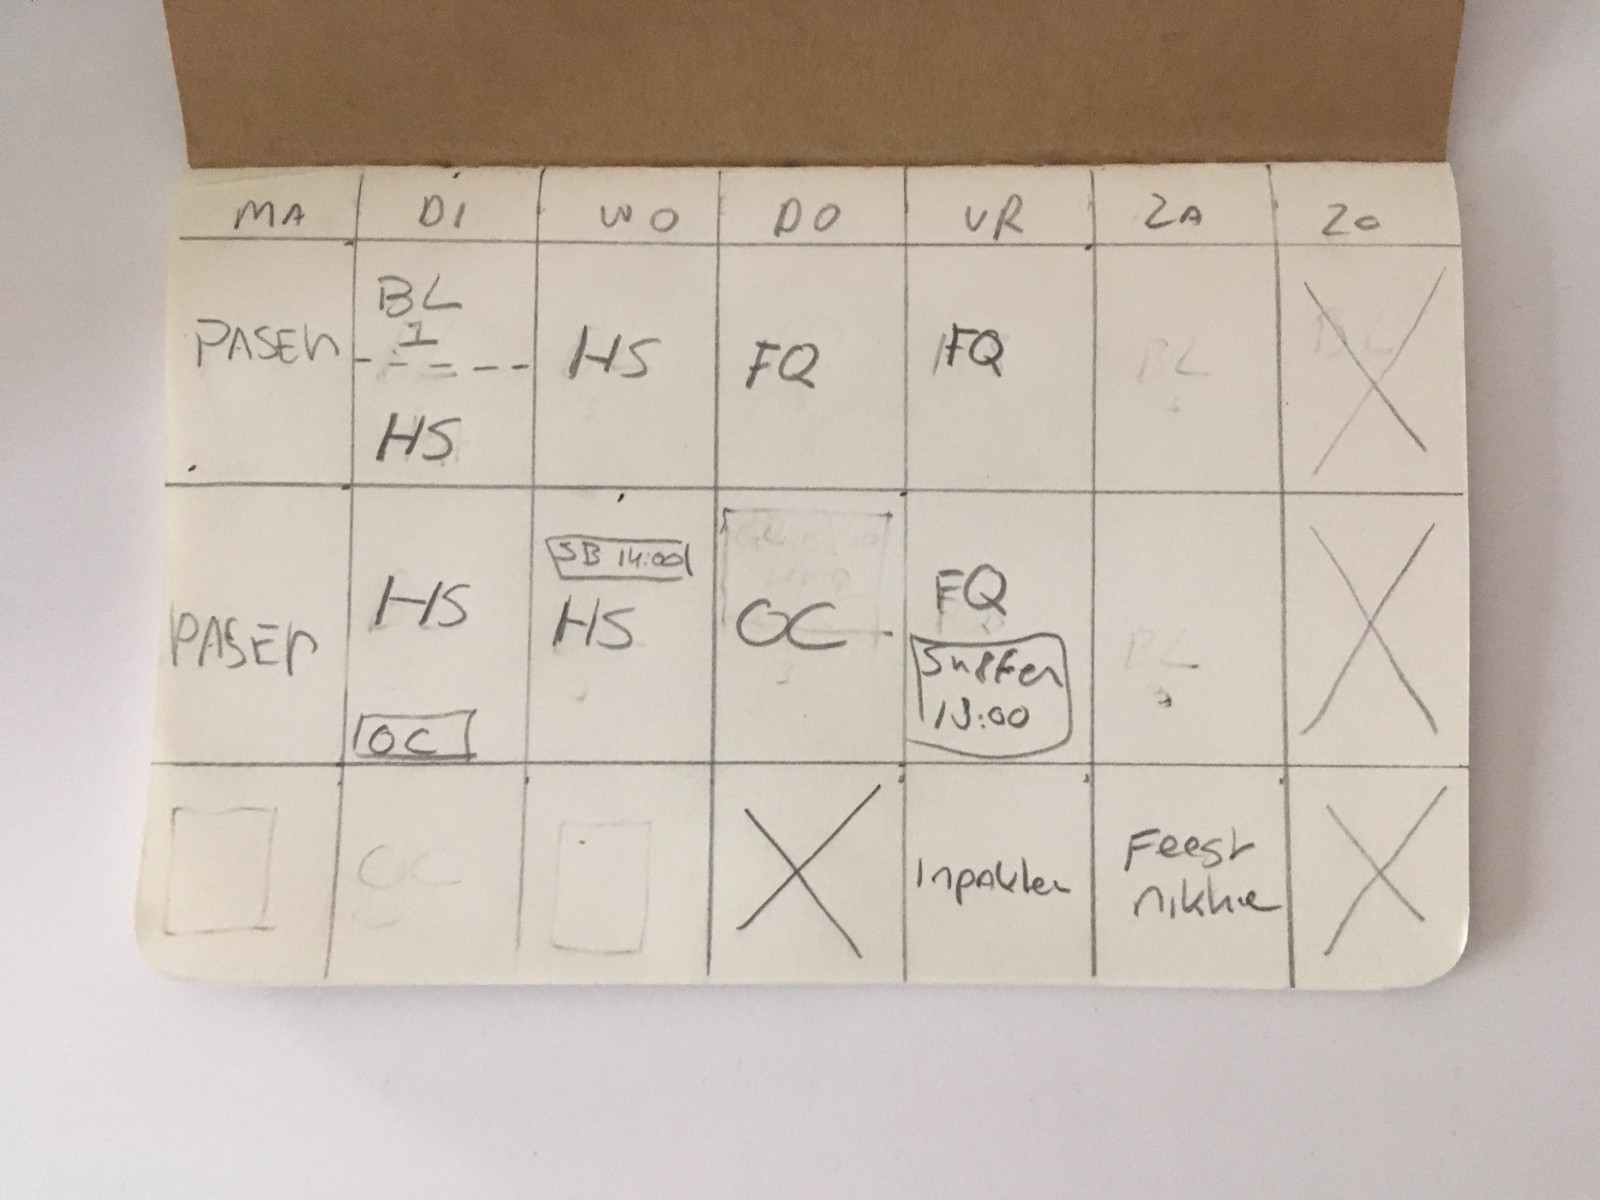 MA DI WO DO VR ZA ZO
PASEN
BL
1
HS
HS
FQ
FQ
BL
BL
PASEN
HS
OC
SB 14:00
HS
OC
FQ
Surfen
13:00
BL
OC
Inpakken
Feest
nikkie